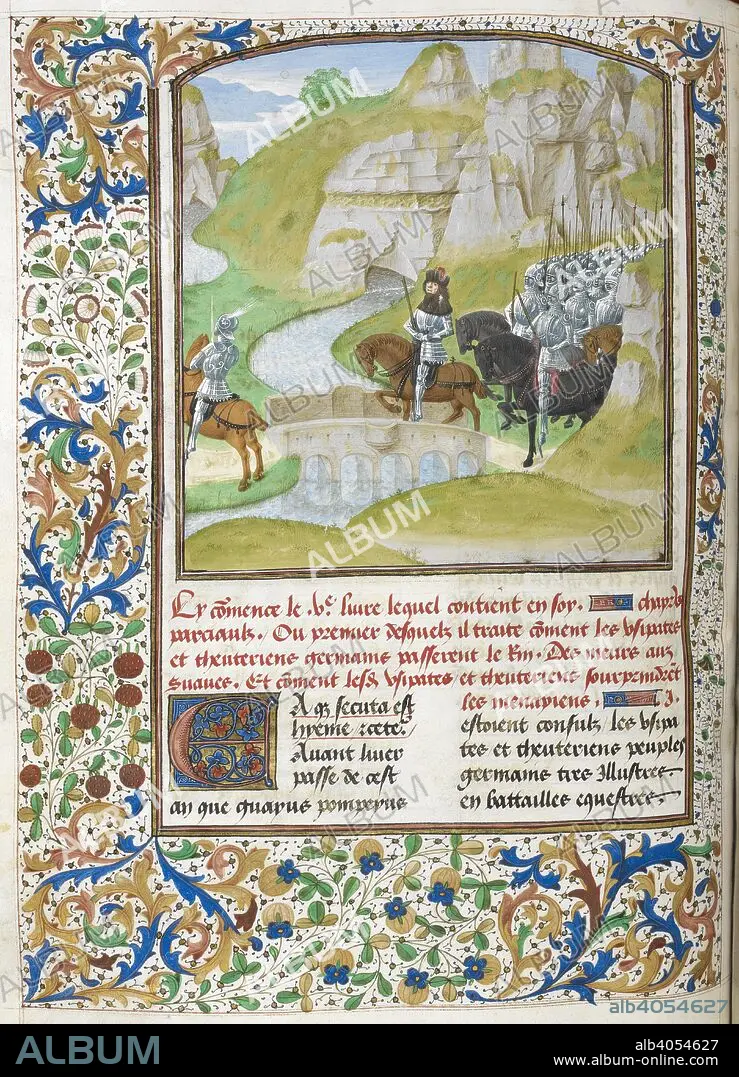 Cy cōmence le .Ve. livre lequel contient en soy. chapr̄s
parciaulx. Ou premier desquelz il traite cōment les vsipates
et theuteriens germains passerent le Rin. Des meurs aux
suaues. Et cōment lesd. vsipates et theuteriens sourprindrēt
les menapiens. .I.
Ea q̄ secuta est
hyeme
Avant liver
passe de cest
an que gnayus pompeyus
estoient consulz les vsipa
tes et theuteriens peuples
germains tres Illustres
en battailles equestres.
ALBUM
alb4054627
ALBUM
alb4054627
www.album-online.com